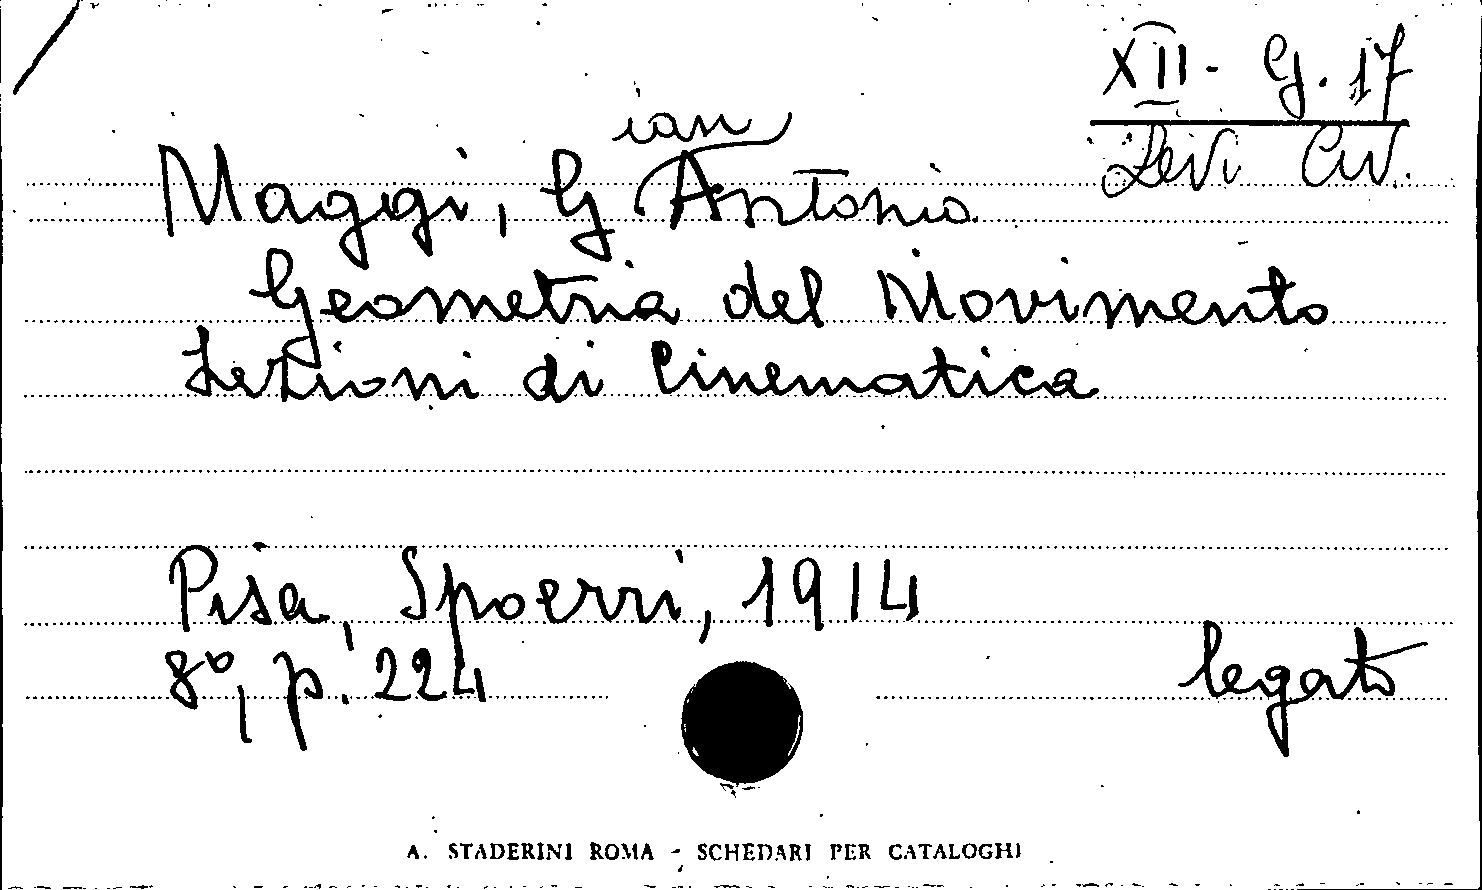 XII - G. 17
Levi Civ.
Maggi, Gian Antonio
Geometria del Movimento
Lezioni di Cinematica
Pisa, Spoerri, 1914
8°, p. 224
legato
A. STADERINI ROMA - SCHEDARI PER CATALOGHI